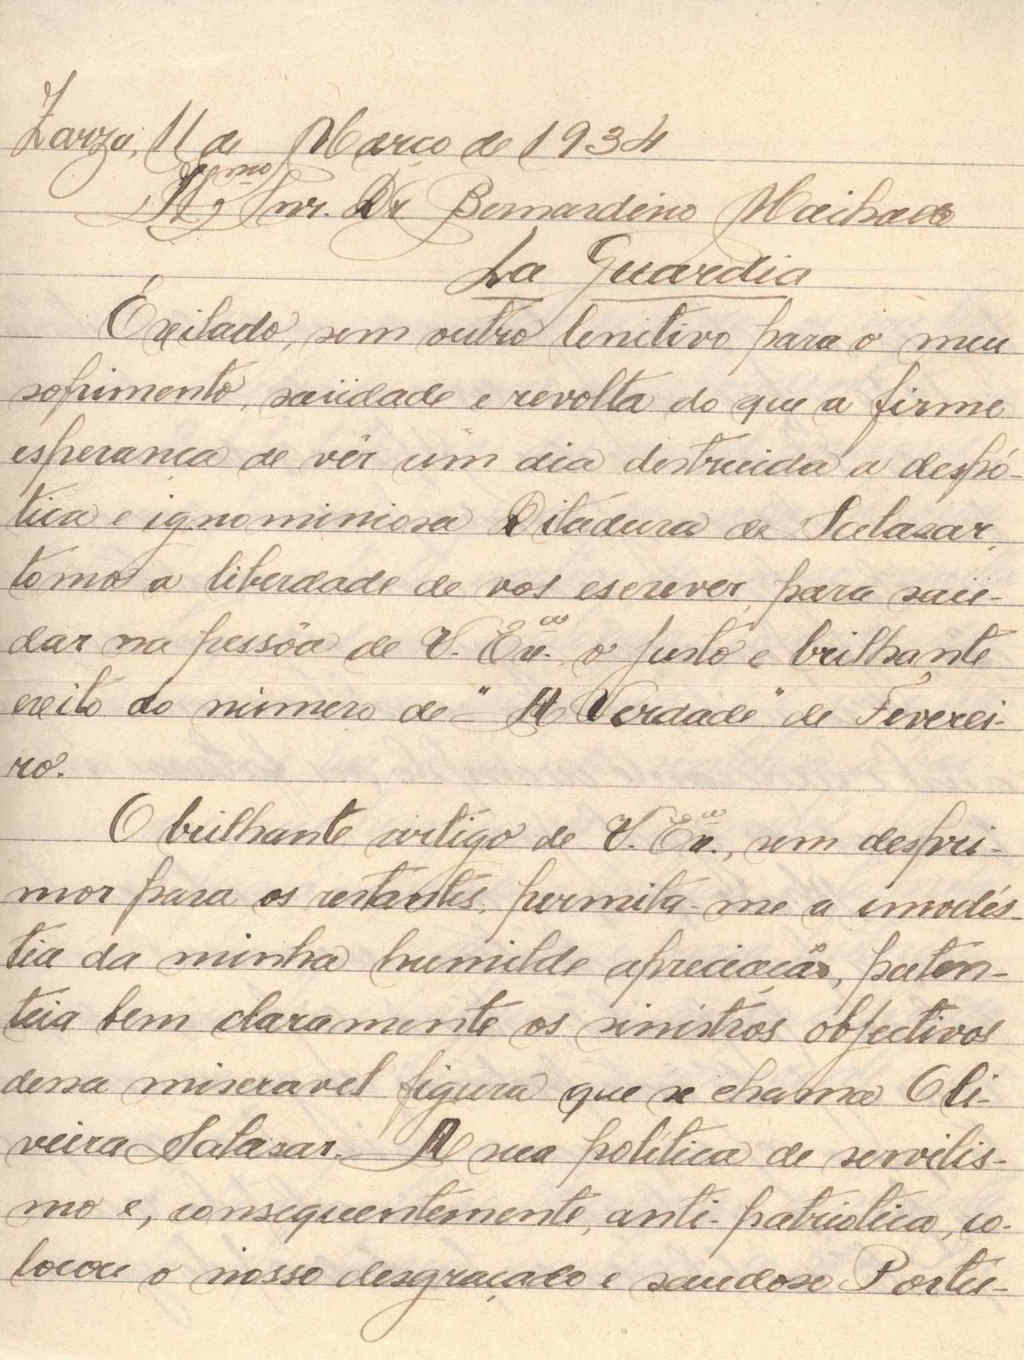 Zarza, 11 de Março de 1934
Ilmo Snr. Dr Bernardino Machado
La Guardia
Exilado, sem outro lenitivo para o meu
sofrimento, saüdade e revolta do que a firme
esperança de vêr um dia destruida a despó-
tica e ignominiosa Ditadura de Salasar,
tomo a liberdade de vos escrever, para saü-
dar na pessôa de V. Ex.cia o justo e brilhante
exito do número de "A Verdade" de Feverei-
ro.
O brilhante artigo de V. Ex.cia, sem despri-
mor para os restantes, permita-me a imodés-
tia da minha humilde apreciação, paten-
teia bem claramente os sinistros objectivos
dessa miseravel figura que se chama Oli-
veira Salasar. A sua política de servilis-
mo e, consequentemente, anti-patriotica, co-
locou o nosso desgraçado e saudoso Portu-